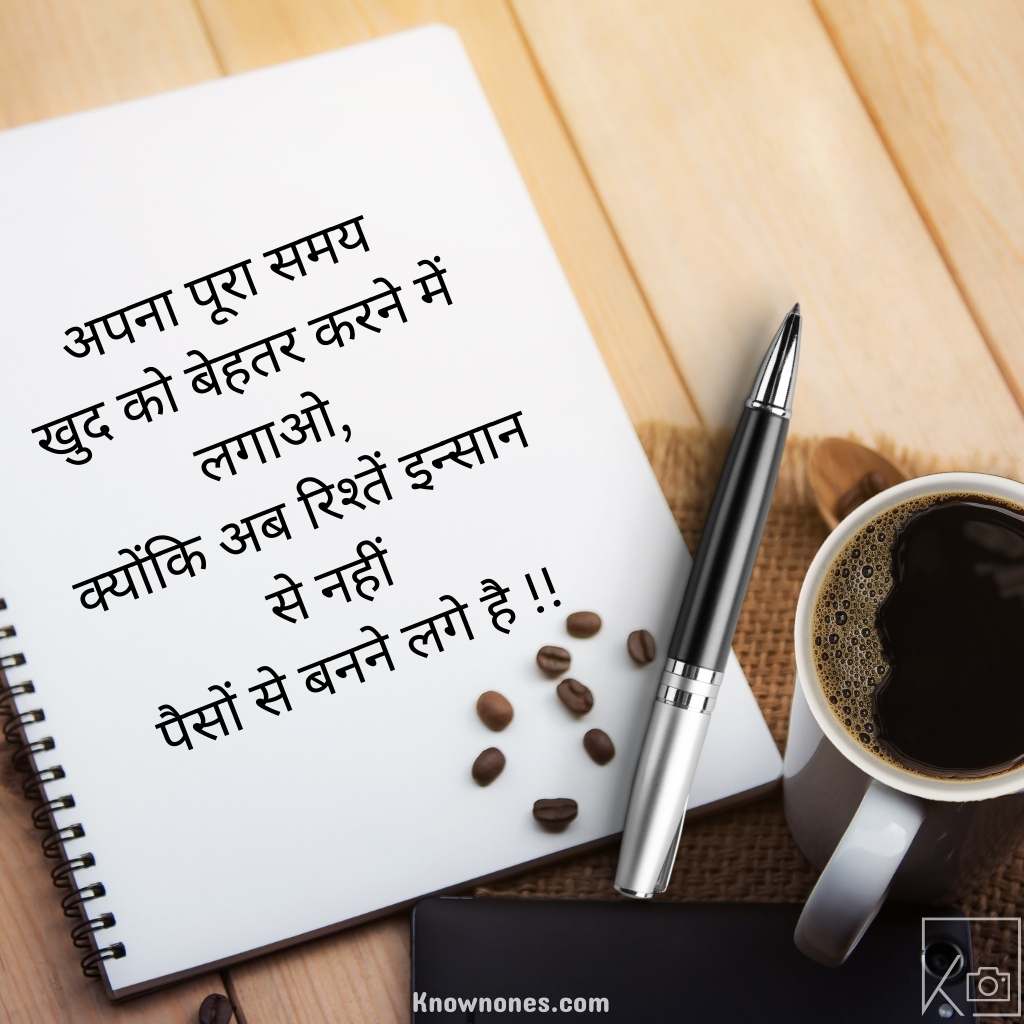 अपना पूरा समय
खुद को बेहतर करने में
लगाओ,
क्योंकि अब रिश्तें इन्सान
से नहीं
पैसों से बनने लगे है !!
Knownones.com